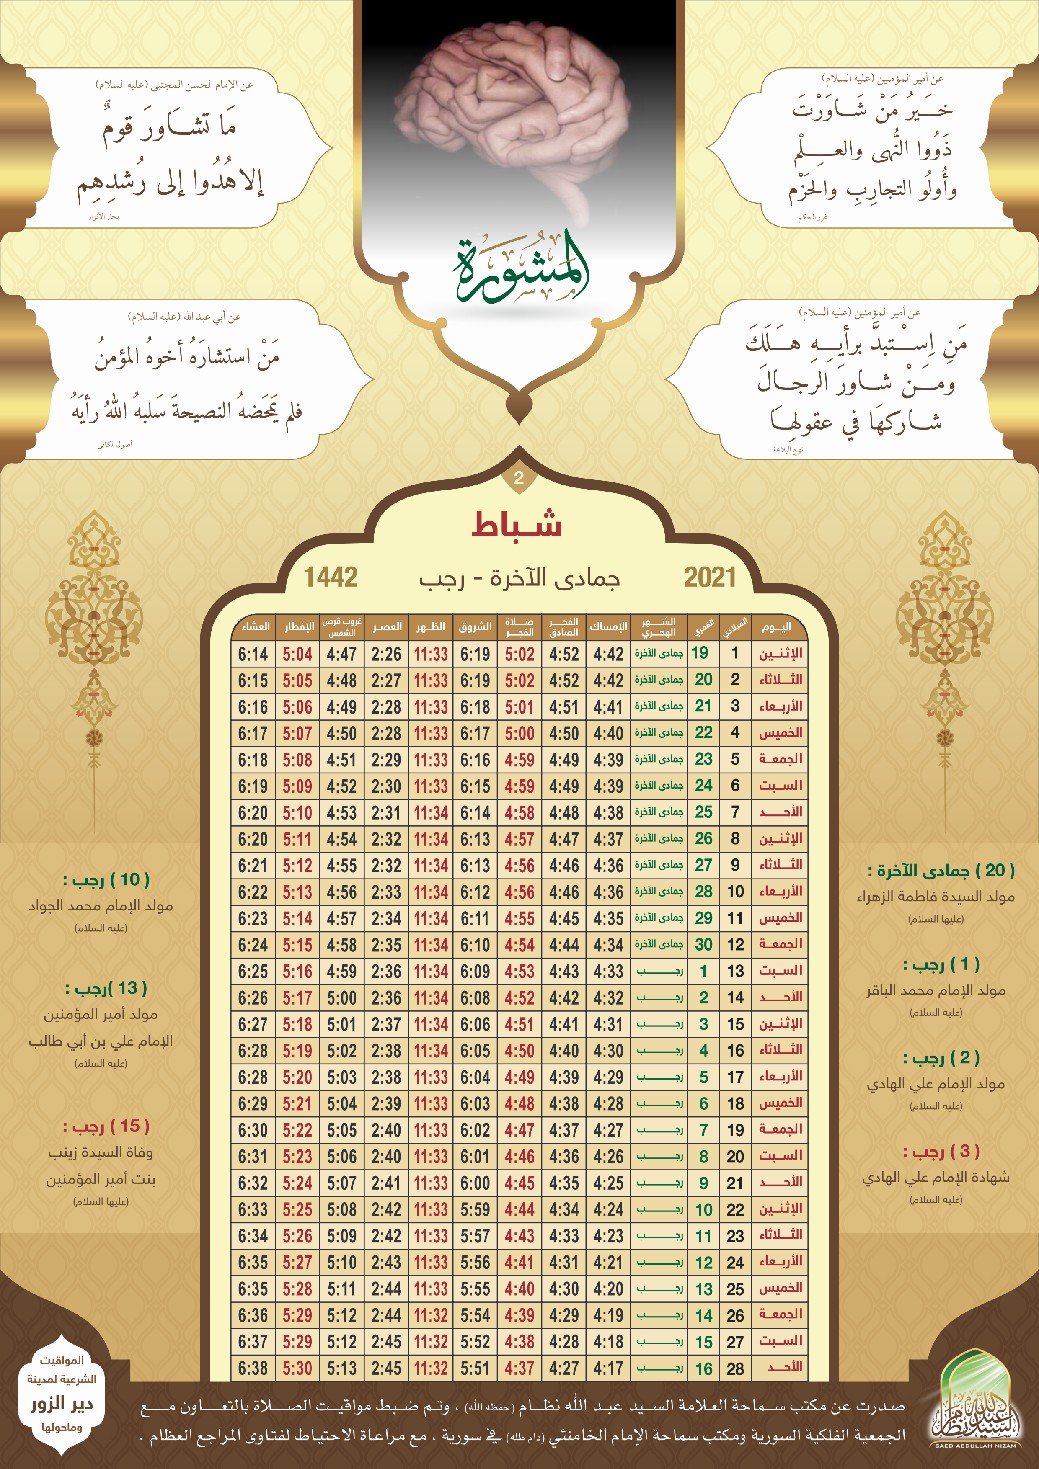 عن أمير المؤمنين (عليه السلام)
خَـيرُ مَنْ شَاوَرْتَ
ذَوُوا النُّهى والعِـلْم
وأُولُو التجارِبِ والحَزْم
غرر الحكم
عن الإمام الحسن المجتبى (عليه السلام)
مَا تشَاورَ قومٌ
إلا هُدُوا إلى رُشدِهِم
بحار الأنوار
المشورة
عن أمير المؤمنين (عليه السلام)
مَنِ اسْتبدَّ برأيِـهِ هَـلَكَ
ومَـنْ شاورَ الرجالَ
شاركهَا في عقولِهَا
نهج البلاغة
عن أبي عبد الله (عليه السلام)
مَنْ استشارَهُ أخوهُ المؤمنُ
فلم يَمحَضهُ النصيحةَ سَلبهُ اللهُ رأيَهُ
أصول الكافي
2
شـباط
2021 جمادى الآخرة - رجب 1442
اليوم الميلادي القمري الشـهر الهجري الإمساك الفجـر الصادق صـلاة الفجـر الشروق الظـهر العصر غروب قرص الشمس الإفطار العشاء
الإثنين 1 19 جمادى الآخرة 4:42 4:52 5:02 6:19 11:33 2:26 4:47 5:04 6:14
الثـلاثاء 2 20 جمادى الآخرة 4:42 4:52 5:02 6:19 11:33 2:27 4:48 5:05 6:15
الأربعاء 3 21 جمادى الآخرة 4:41 4:51 5:01 6:18 11:33 2:28 4:49 5:06 6:16
الخميس 4 22 جمادى الآخرة 4:40 4:50 5:00 6:17 11:33 2:28 4:50 5:07 6:17
الجمعـة 5 23 جمادى الآخرة 4:39 4:49 4:59 6:16 11:33 2:29 4:51 5:08 6:18
السـبت 6 24 جمادى الآخرة 4:39 4:49 4:59 6:15 11:33 2:30 4:52 5:09 6:19
الأحـــد 7 25 جمادى الآخرة 4:38 4:48 4:58 6:14 11:34 2:31 4:53 5:10 6:20
الإثنين 8 26 جمادى الآخرة 4:37 4:47 4:57 6:13 11:34 2:32 4:54 5:11 6:20
الثـلاثاء 9 27 جمادى الآخرة 4:36 4:46 4:56 6:13 11:34 2:32 4:55 5:12 6:21
الأربعاء 10 28 جمادى الآخرة 4:36 4:46 4:56 6:12 11:34 2:33 4:56 5:13 6:22
الخميس 11 29 جمادى الآخرة 4:35 4:45 4:55 6:11 11:34 2:34 4:57 5:14 6:23
الجمعـة 12 30 جمادى الآخرة 4:34 4:44 4:54 6:10 11:34 2:35 4:58 5:15 6:24
السـبت 13 1 رجـــب 4:33 4:43 4:53 6:09 11:34 2:36 4:59 5:16 6:25
الأحـــد 14 2 رجـــب 4:32 4:42 4:52 6:08 11:34 2:36 5:00 5:17 6:26
الإثنين 15 3 رجـــب 4:31 4:41 4:51 6:06 11:34 2:37 5:01 5:18 6:27
الثـلاثاء 16 4 رجـــب 4:30 4:40 4:50 6:05 11:34 2:38 5:02 5:19 6:28
الأربعاء 17 5 رجـــب 4:29 4:39 4:49 6:04 11:33 2:38 5:03 5:20 6:28
الخميس 18 6 رجـــب 4:28 4:38 4:48 6:03 11:33 2:39 5:04 5:21 6:29
الجمعـة 19 7 رجـــب 4:27 4:37 4:47 6:02 11:33 2:40 5:05 5:22 6:30
السـبت 20 8 رجـــب 4:26 4:36 4:46 6:01 11:33 2:40 5:06 5:23 6:31
الأحـــد 21 9 رجـــب 4:25 4:35 4:45 6:00 11:33 2:41 5:07 5:24 6:32
الإثنين 22 10 رجـــب 4:24 4:34 4:44 5:59 11:33 2:42 5:08 5:25 6:33
الثـلاثاء 23 11 رجـــب 4:23 4:33 4:43 5:57 11:33 2:42 5:09 5:26 6:34
الأربعاء 24 12 رجـــب 4:21 4:31 4:41 5:56 11:33 2:43 5:10 5:27 6:35
الخميس 25 13 رجـــب 4:20 4:30 4:40 5:55 11:33 2:44 5:11 5:28 6:35
الجمعـة 26 14 رجـــب 4:19 4:29 4:39 5:54 11:32 2:44 5:12 5:29 6:36
السـبت 27 15 رجـــب 4:18 4:28 4:38 5:52 11:32 2:45 5:12 5:29 6:37
الأحـــد 28 16 رجـــب 4:17 4:27 4:37 5:51 11:32 2:45 5:13 5:30 6:38
( 20 ) جمادى الآخرة :
مولد السيدة فاطمة الزهراء
(عليها السلام)
( 1 ) رجب :
مولد الإمام محمد الباقر
(عليه السلام)
( 2 ) رجب :
مولد الإمام علي الهادي
(عليه السلام)
( 3 ) رجب :
شهادة الإمام علي الهادي
(عليه السلام)
( 10 ) رجب :
مولد الإمام محمد الجواد
(عليه السلام)
( 13 )رجب :
مولد أمير المؤمنين
الإمام علي بن أبي طالب
(عليه السلام)
( 15 ) رجب :
وفاة السيدة زينب
بنت أمير المؤمنين
(عليها السلام)
صدرت عن مكتب سماحة العلامة السيد عبد الله نظـام (حفظه الله) ، وتـم ضبـط مواقيـت الصـلاة بالتعـاون مـع
الجمعية الفلكية السورية ومكتب سماحة الإمام الخامنئي (دام ظله) في سورية ، مع مراعـاة الاحتياط لفتاوى المراجع العظام .
المواقيت
الشرعية لمدينة
دير الزور
وماحولها
السيد عبد الله نظام
SAED ABDULLAH NIZAM